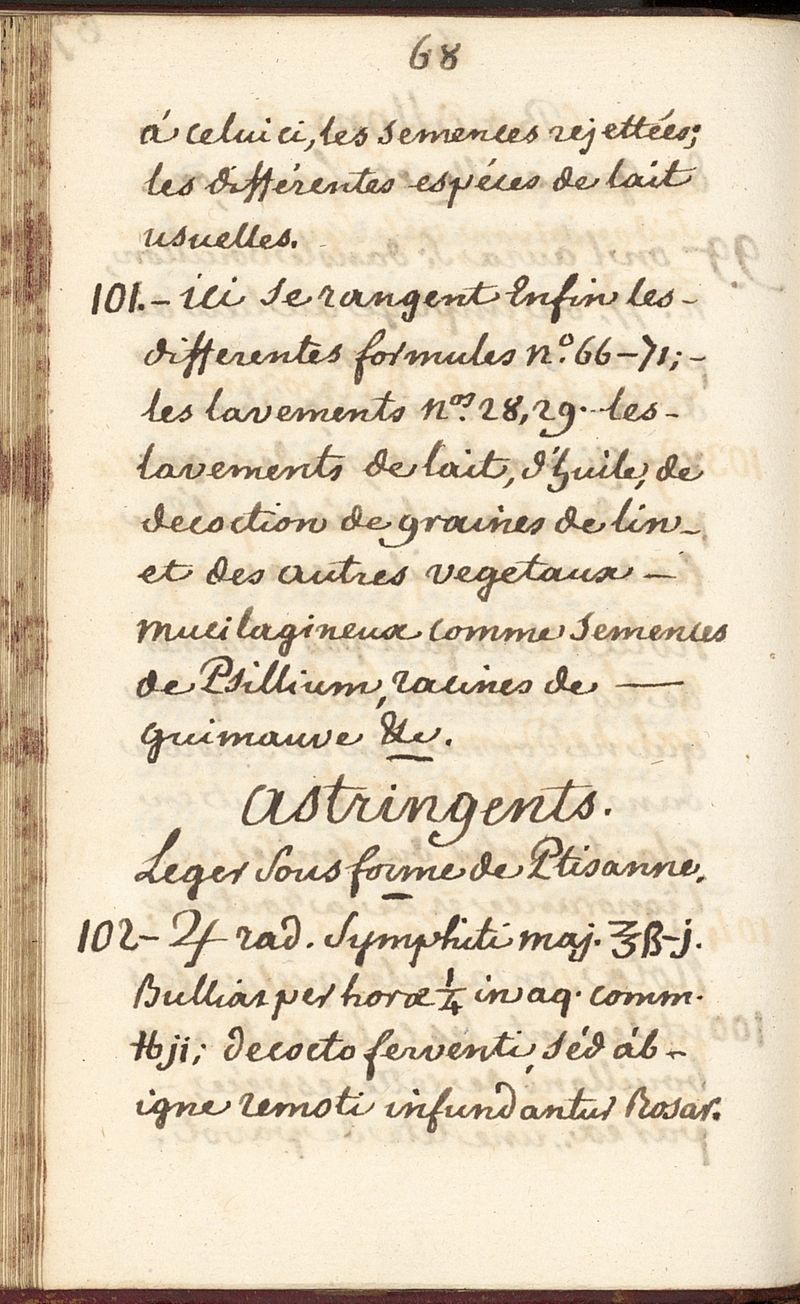 68
á celui ci, les semences rejettées;
les différentes espéces de lait
usuelles.
101.- ici se rangent Enfin les-
differentes formules nº. 66-71;-
les lavements nos. 28, 29. les-
lavements de lait, d'huile, de
decoction de graines de lin-
et des autres vegetaux-
mucilagineux comme semences
de Psillium, racines de —
guimauve &c.
Astringents.
Leger sous forme de Ptisanne.
102- ♃ rad. Symphiti maj. ℥ß-j.
Bulliat per horæ ¼ in aq. comm.
℔ji; decocto ferventi, séd áb-
igne remoti infundantur Rosar.